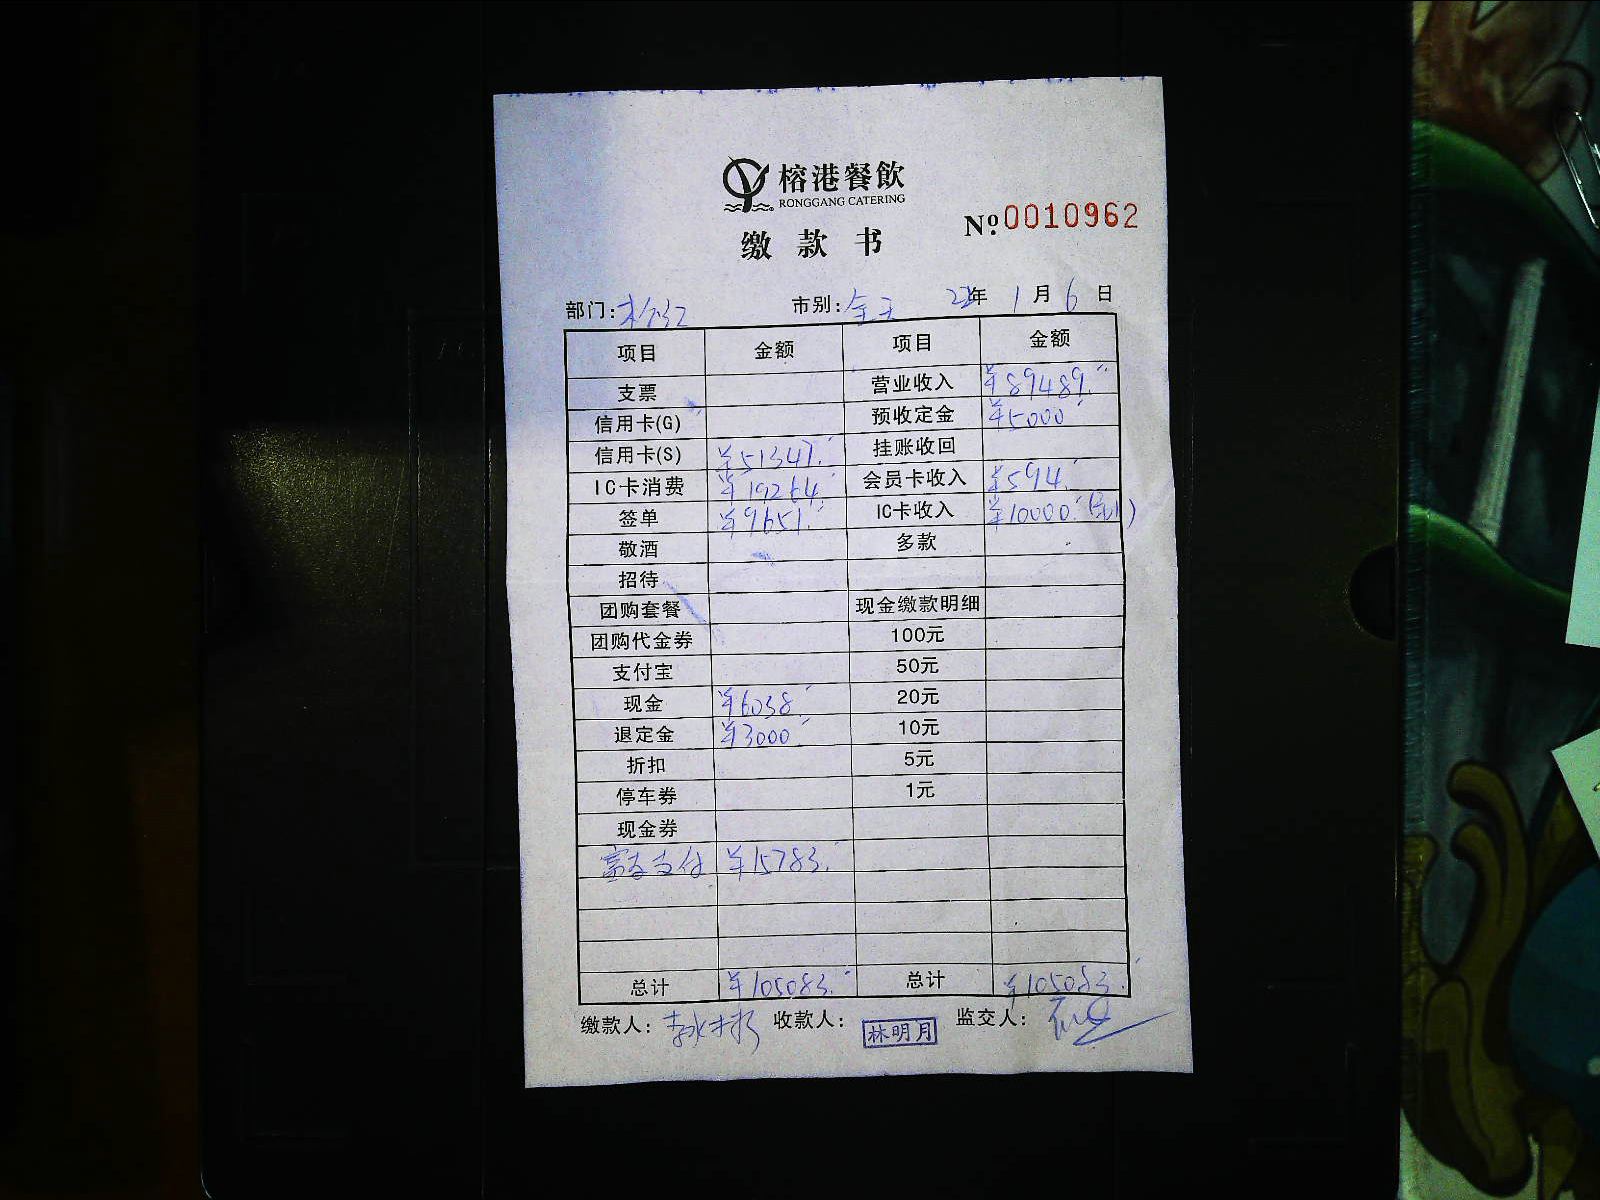 榕港餐飲
RONGGANG CATERING
№ 0010962
缴款书
部门: 市别:全天 22年 1月 6日
项目 金额 项目 金额
支票 营业收入 ¥89489.
信用卡(G) 预收定金 ¥5000
信用卡(S) ¥51347. 挂账收回
IC卡消费 ¥19264. 会员卡收入 ¥594.
签单 ¥9651. IC卡收入 ¥10000.
敬酒 多款
招待
团购套餐 现金缴款明细
团购代金券 100元
支付宝 50元
现金 ¥6038. 20元
退定金 ¥3000 10元
折扣 5元
停车券 1元
现金券
支付 ¥15783.
总计 ¥105083. 总计 ¥105083.
缴款人: 收款人: 林明月 监交人: